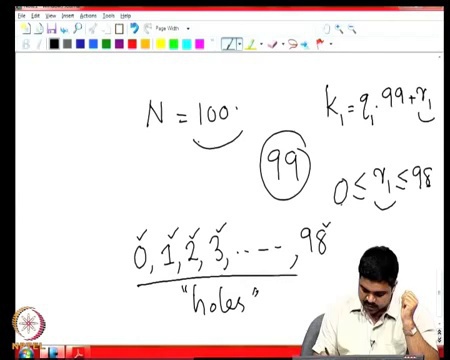 File Edit View Insert Actions Tools Help
Page Width
N = 100.
k₁ = q₁ . 99 + r₁
99
0 ≤ r₁ ≤ 98
0, 1, 2, 3, ...---, 98
"holes"